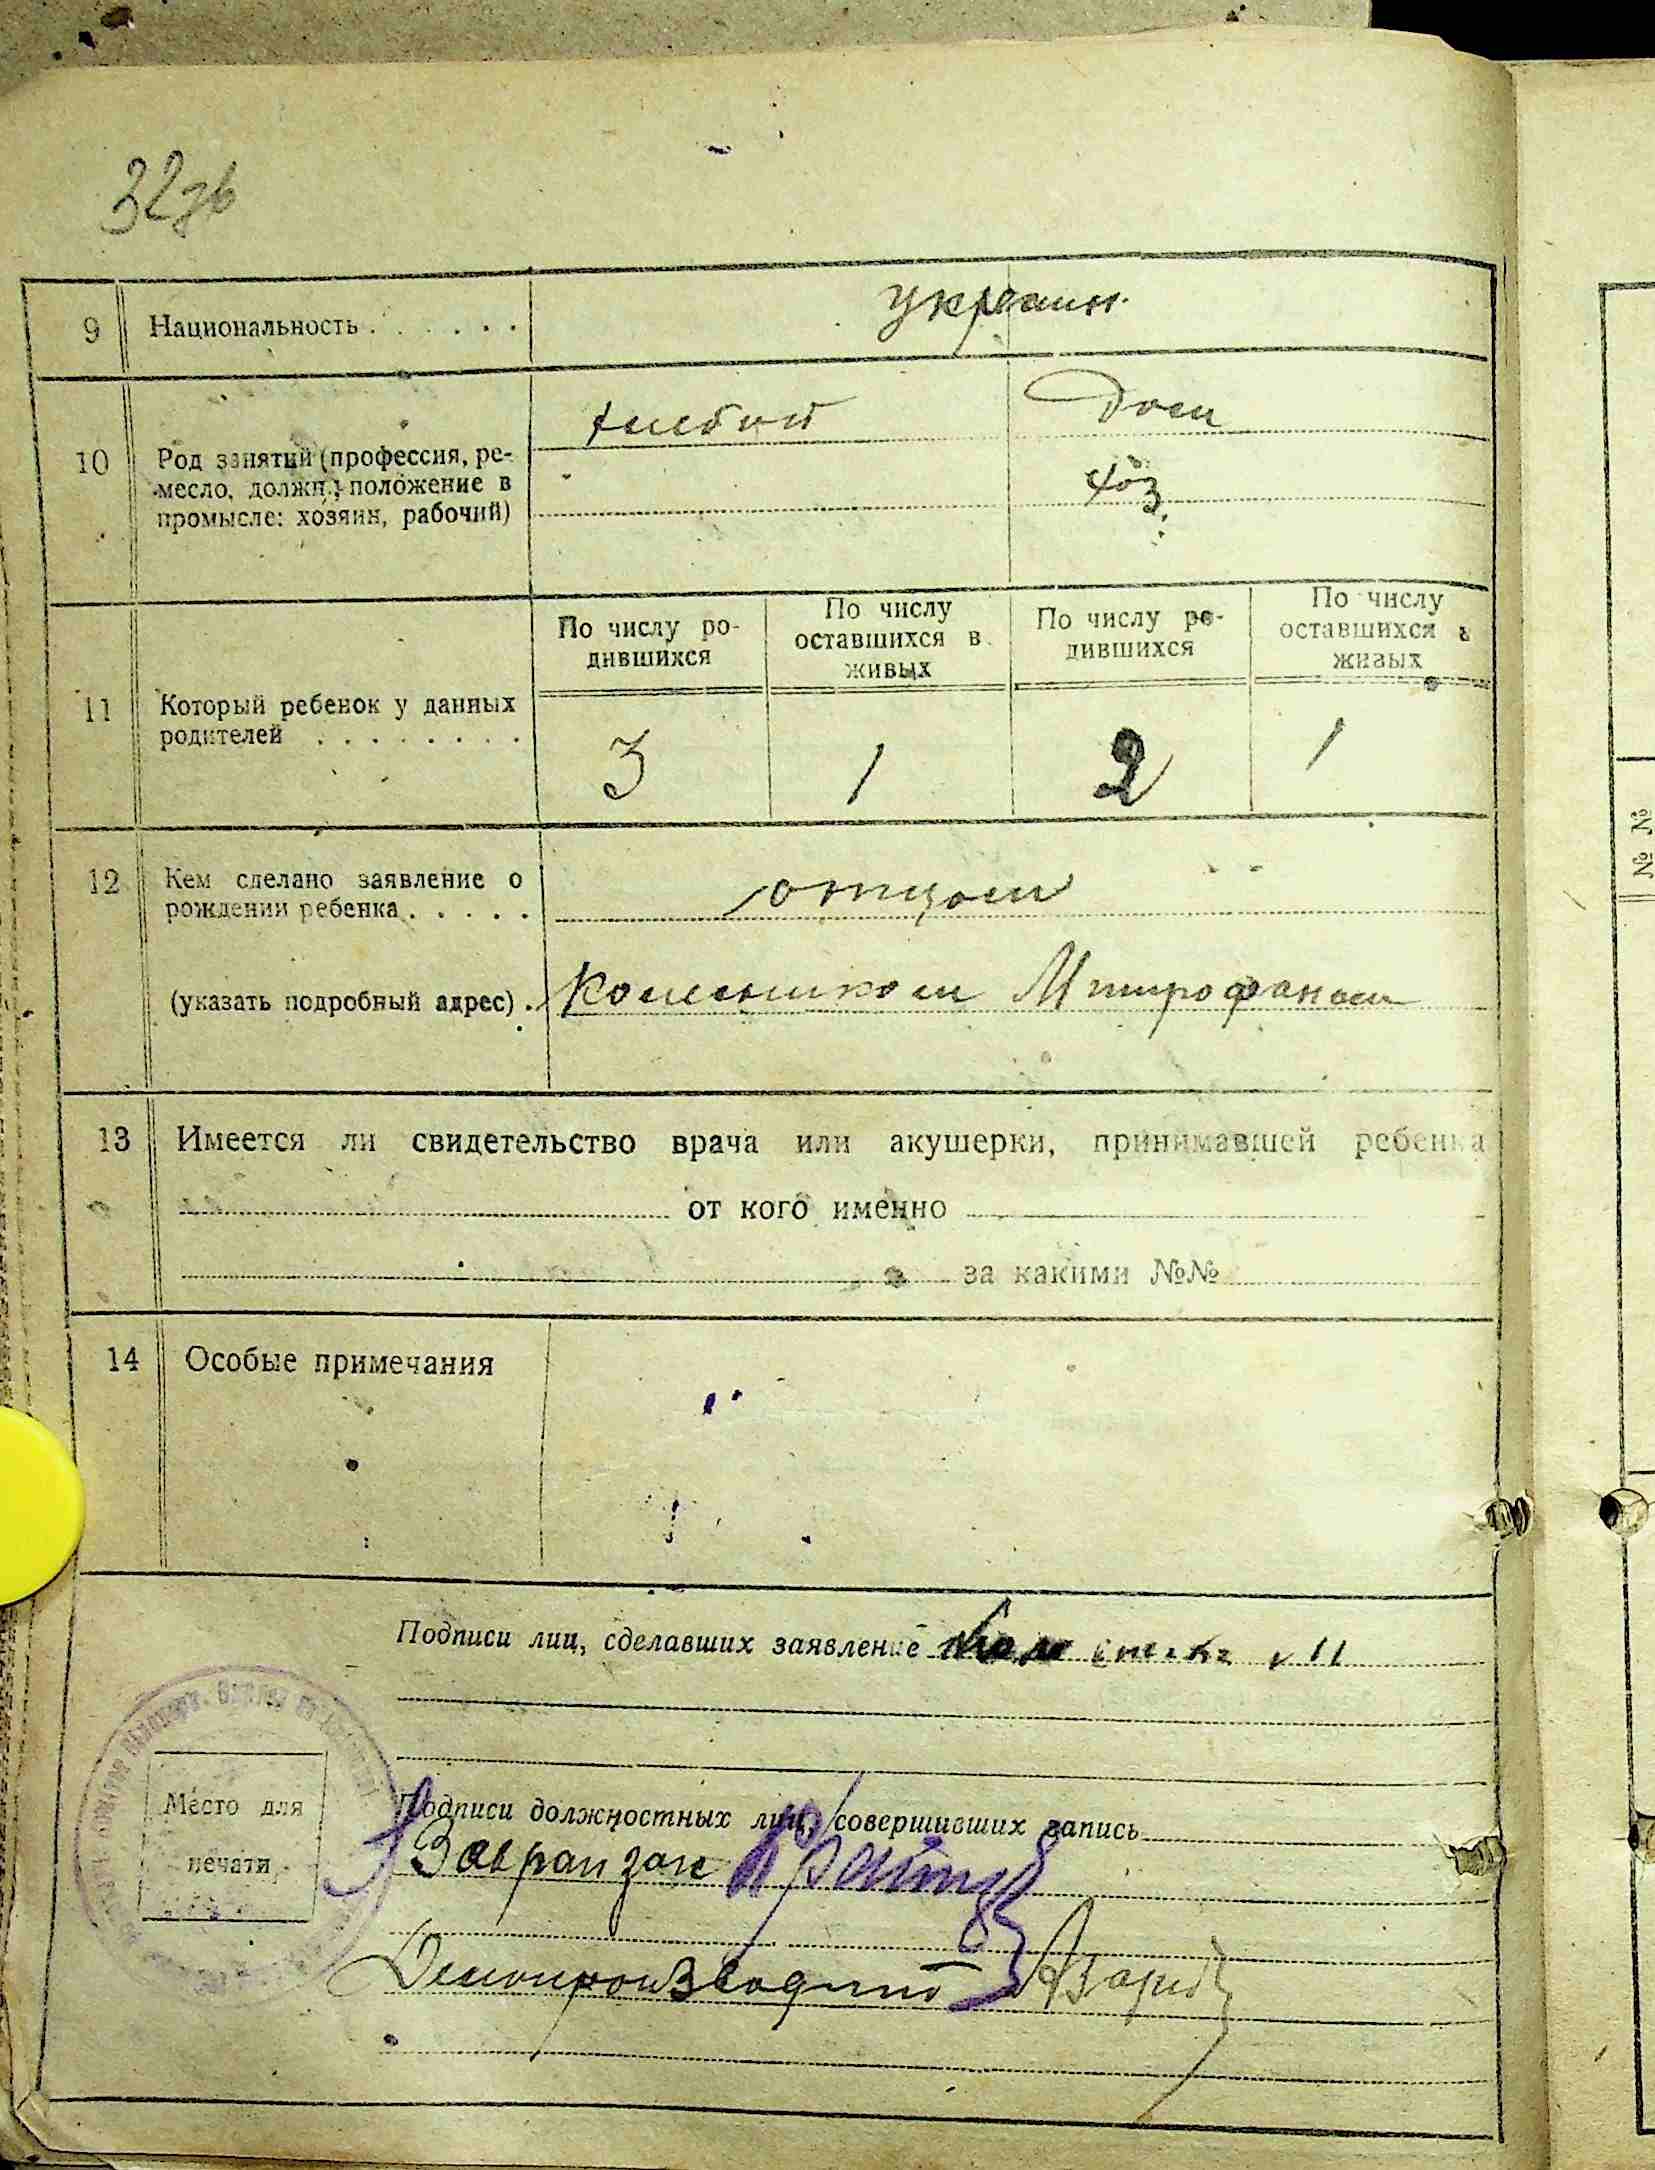 32
9 Национальность . . . . . . украин.
10 Род занятий (профессия, ре-
месло, должн.; положение в
промысле: хозяин, рабочий)
Дом
хоз.
По числу ро-
дившихся
По числу
оставшихся в
живых
По числу ро-
дившихся
По числу
оставшихся в
живых
11 Который ребенок у данных
родителей . . . . . . . .
3 1 2 1
12 Кем сделано заявление о
рождении ребенка . . . . .
отцом
(указать подробный адрес) . Колесником Митрофаном
13 Имеется ли свидетельство врача или акушерки, принимавшей ребенка
от кого именно
за какими №№
14 Особые примечания
Подписи лиц, сделавших заявление
Место для
печати
Подписи должностных лиц, совершивших запись
Делопроизводит
№ №